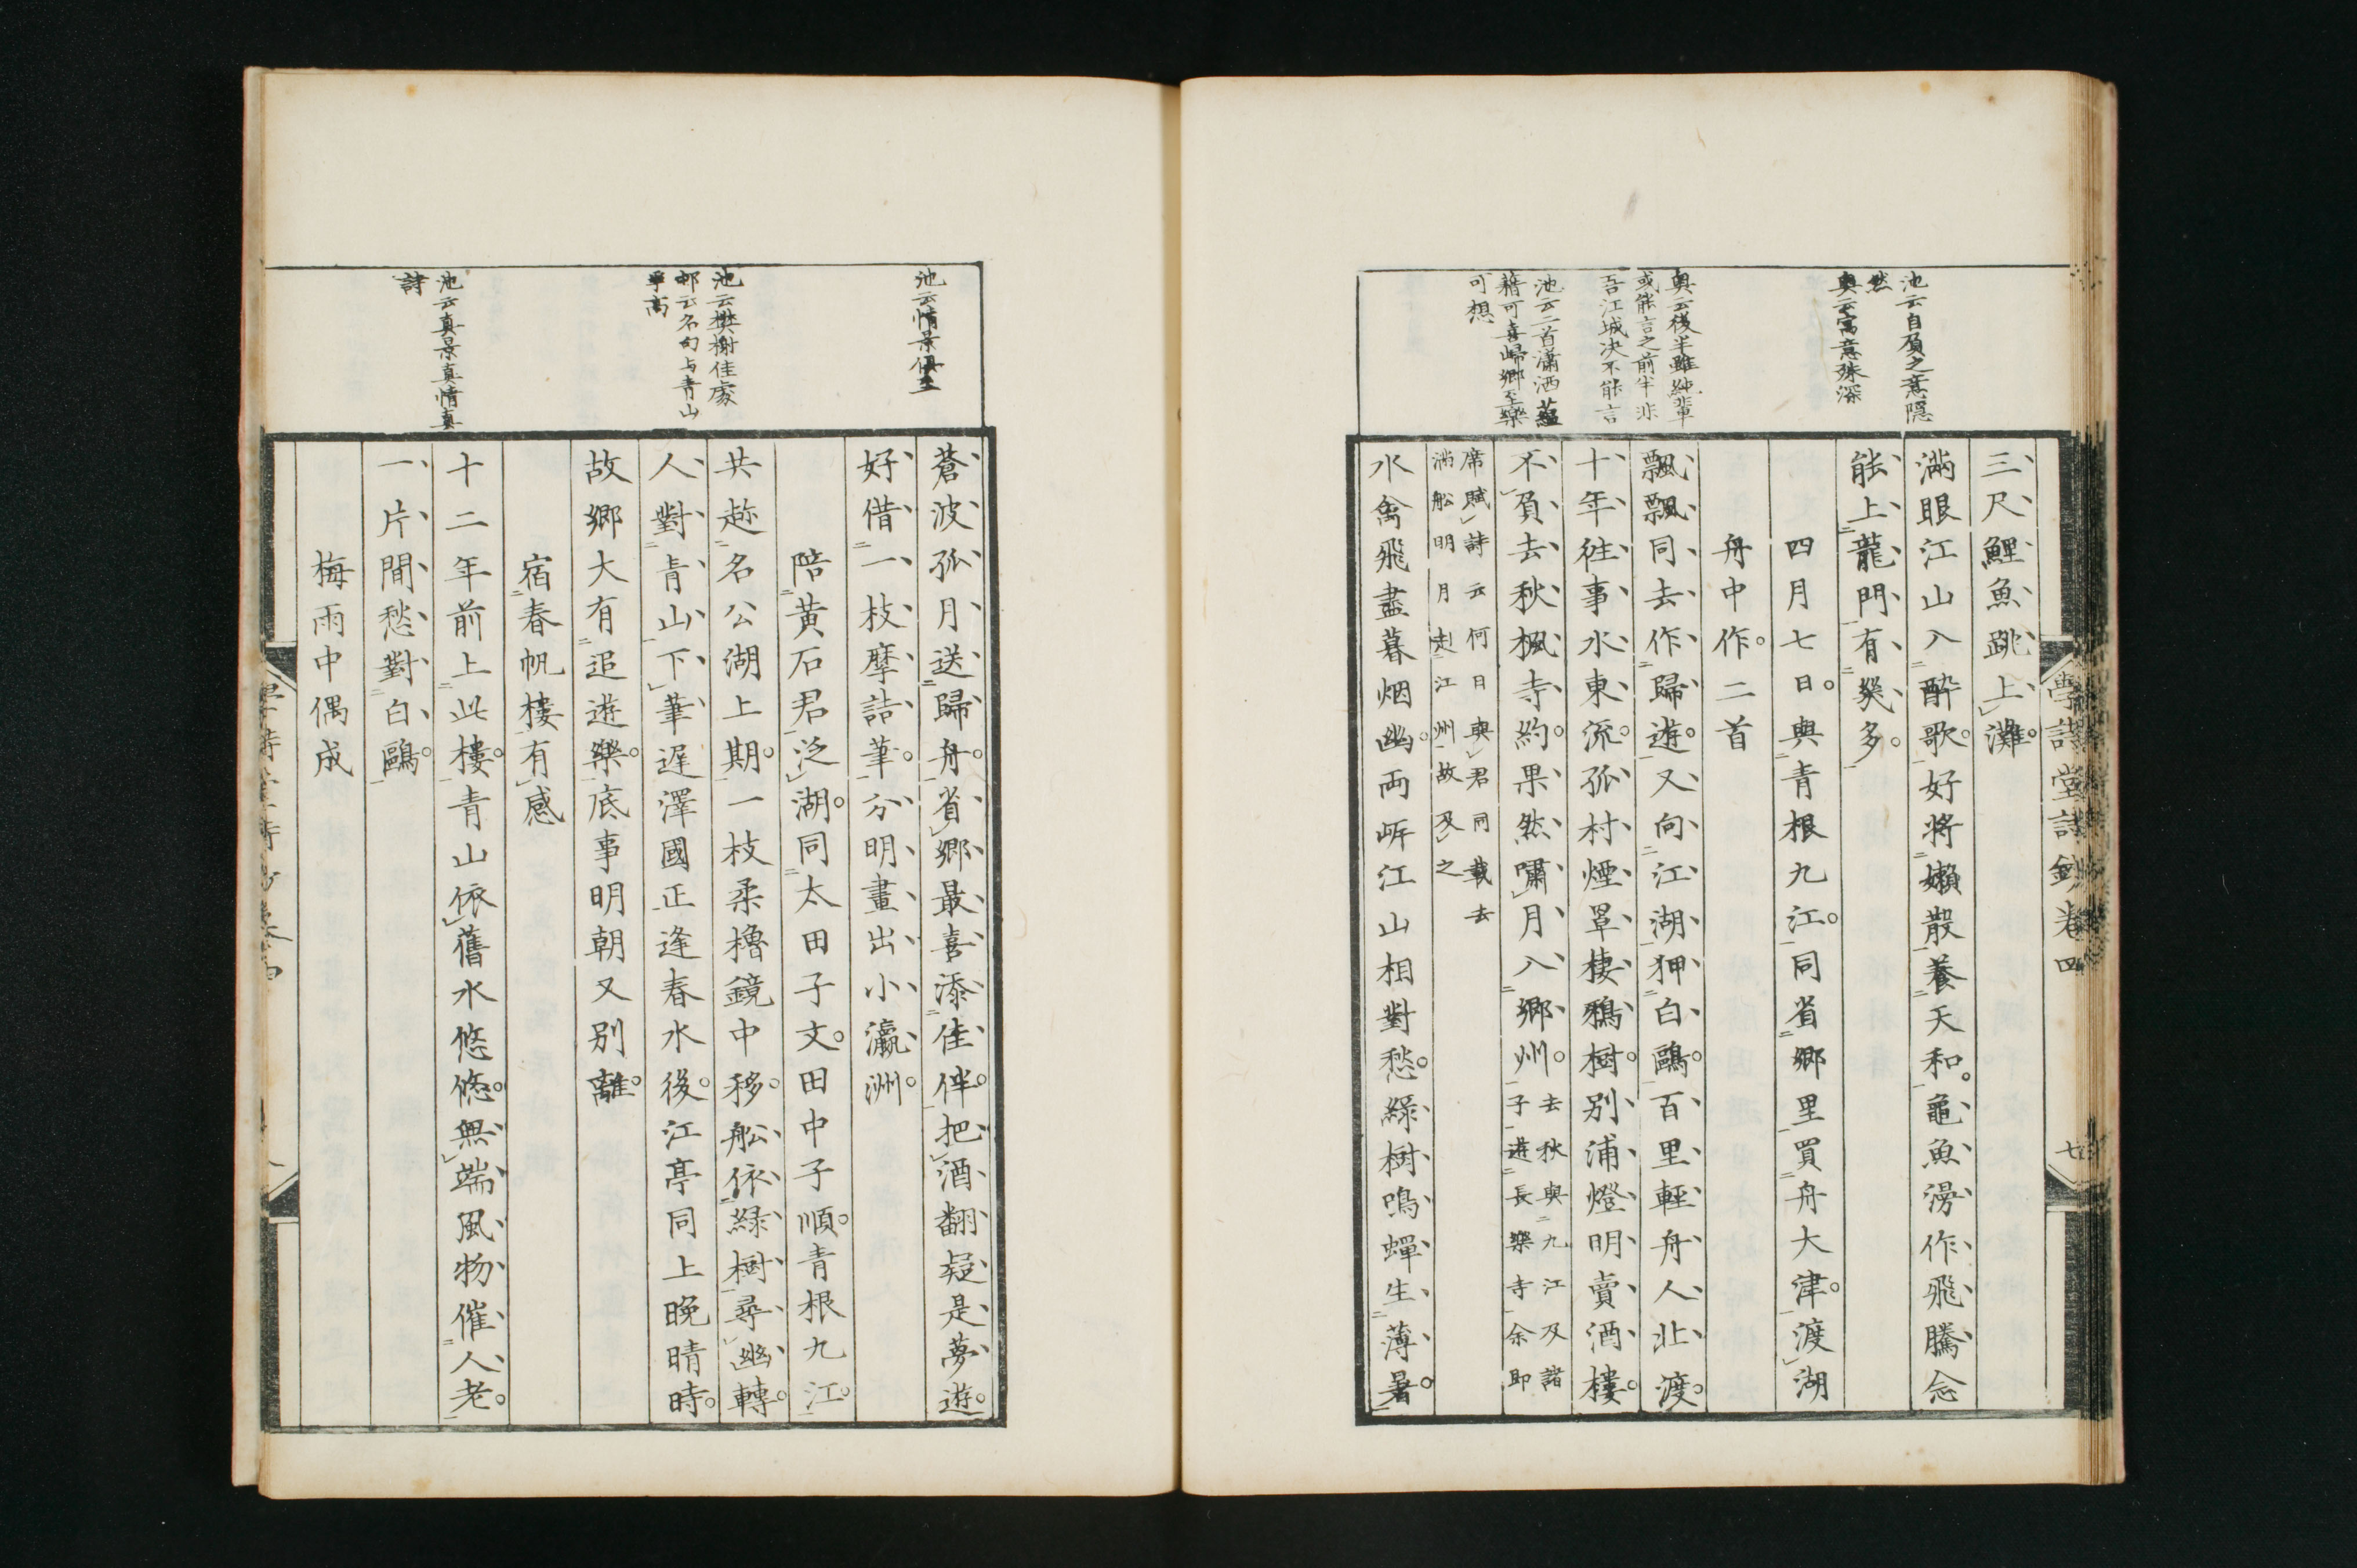 學詩堂詩鈔卷四
七
池云自負之意隱
然
奥云寓意殊深
奥云後半雖紳輩
或能言之前半非
吾江城決不能言
池云二首瀟洒蘊
藉可喜歸鄉至樂
可想
三尺鯉魚跳上灘
滿眼江山入酔歌。好將嬾散養天和。龜魚漫作飛騰念
能上龍門有幾多。
四月七日。與青根九江。同省鄉里買舟大津。渡湖
舟中作。二首
飄飄同去作歸遊。又向江湖狎白鷗。百里輕舟人北渡。
十年往事水東流。孤村煙罩棲鴉樹。別浦燈明賣酒樓。
不負去秋楓寺約。果然嘯月入鄉州。去秋與九江及諸
子遊長樂寺余即
席賦詩云何日與君同載去
滿船明月走江州故及之
水禽飛盡暮烟幽。両岸江山相對愁。綠樹鳴蟬生薄暑。
池云情景俱至
池云樊榭佳處
邨云名句与青山
爭高
池云真景真情真
詩
蒼波孤月送歸舟。省鄉最喜添佳伴。把酒翻疑是夢遊。
好借一枝摩詰筆。分明畫出小瀛洲。
陪黄石君泛湖。同太田子文。田中子順。青根九江。
共趂名公湖上期。一枝柔櫓鏡中移。舩依綠樹尋幽轉。
人對青山下筆遲澤國正逢春水後。江亭同上晩晴時。
故鄉大有追遊樂。底事明朝又別離。
宿春帆樓有感
十二年前上此樓。青山依舊水悠悠。無端風物催人老。
一片閒愁對白鷗。
梅雨中偶成